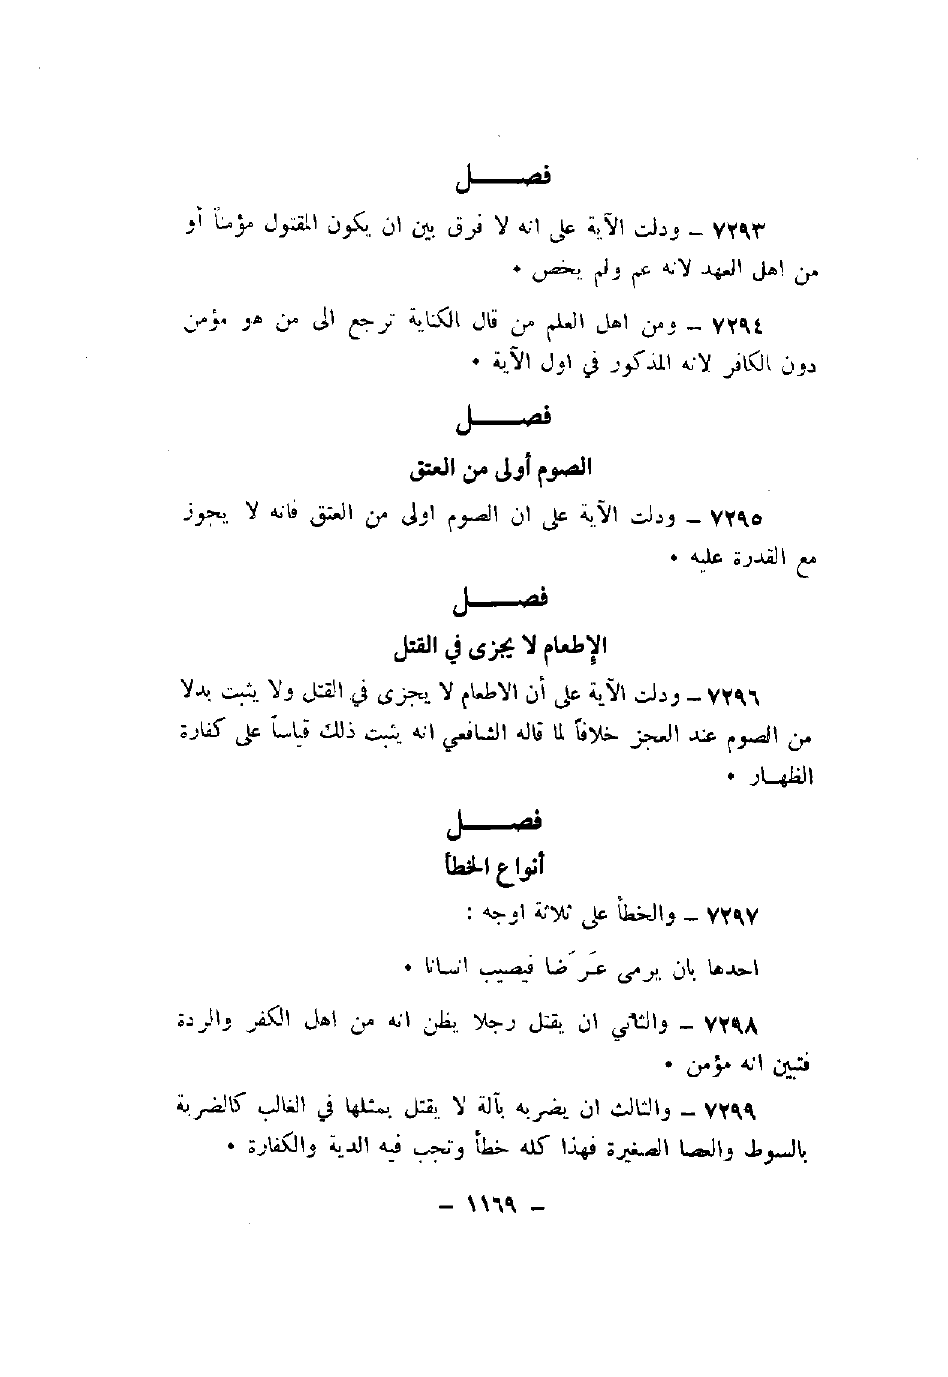 فصــــل
٧٢٩٣ – ودلت الآية على انه لا فرق بين ان يكون المقتول مؤمناً أو
من اهل العهد لانه عم ولم يخص ٠
٧٢٩٤ – ومن اهل العلم من قال الكناية ترجع الى من هو مؤمن
دون الكافر لانه المذكور في اول الآية ٠
فصــــل
الصوم أولى من العتق
٧٢٩٥ – ودلت الآية على ان الصوم اولى من العتق فانه لا يجوز
مع القدرة عليه ٠
فصــــل
الإطعام لا يجزى في القتل
٧٢٩٦ – ودلت الآية على أن الاطعام لا يجزى في القتل ولا يثبت بدلا
من الصوم عند العجز خلافاً لما قاله الشافعي انه يثبت ذلك قياساً على كفارة
الظهــار ٠
فصــــل
أنواع الخطأ
٧٢٩٧ – والخطأ على ثلاثة اوجه :
احدها بان يرمى عَرَضا فيصيب انسانا ٠
٧٢٩٨ – والثاني ان يقتل رجلا يظن انه من اهل الكفر والردة
فتبين انه مؤمن ٠
٧٢٩٩ – والثالث ان يضربه بآلة لا يقتل بمثلها في الغالب كالضربة
بالسوط والعصا الصغيرة فهذا كله خطأ وتجب فيه الدية والكفارة ٠
– ١١٦٩ –